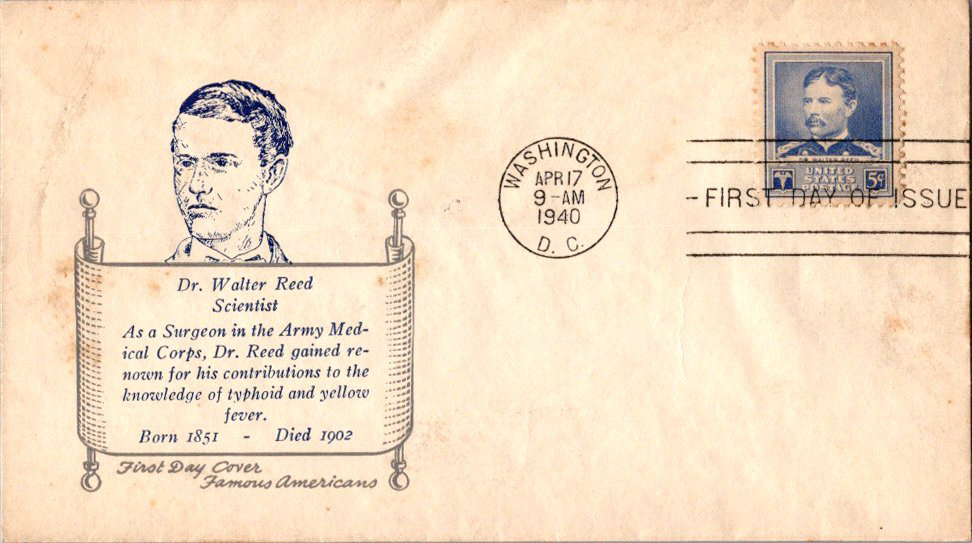 Dr. Walter Reed
Scientist
As a Surgeon in the Army Med-
ical Corps, Dr. Reed gained re-
nown for his contributions to the
knowledge of typhoid and yellow
fever.
Born 1851 - Died 1902
First Day Cover
Famous Americans
WASHINGTON
APR 17
9-AM
1940
D. C.
DR. WALTER REED
UNITED
STATES
POSTAGE
5¢
- FIRST DAY OF ISSUE